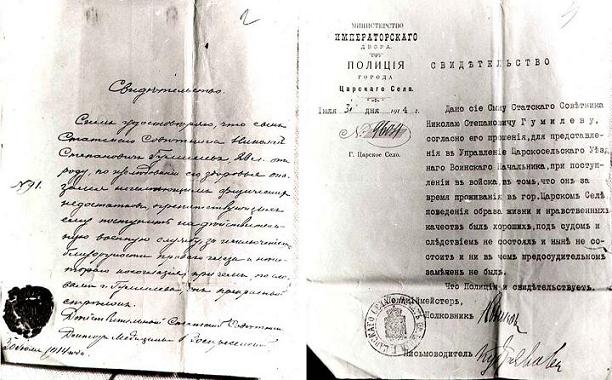 2
Свидѣтельство.
Симъ удостовѣряю, что сынъ
Статскаго Совѣтника Николай
Степановичъ Гумилевъ 28 л. отъ
роду, по изслѣдованіи его здоровья ока-
зался неимѣющимъ физическихъ
недостатковъ, препятствующихъ
№ 91.
ему поступить на дѣйствитель-
ную военную службу, за исключеніемъ
близорукости праваго глаза и нѣко-
тораго косоглазія, причемъ, по сло-
вамъ г. Гумилева, онъ прекрасный
стрѣлокъ.
Дѣйствительный Статскій Совѣтникъ
Докторъ Медицины
1914 года
МИНИСТЕРСТВО
ИМПЕРАТОРСКАГО
ДВОРА.
ПОЛИЦІЯ
ГОРОДА
Царскаго Села.
Іюля 31 дня 1914 г.
№ 9634
Г. Царское Село.
СВИДѢТЕЛЬСТВО
Дано сіе Сыну Статскаго Совѣтника
Николаю Степановичу Гумилеву,
согласно его прошенія, для представленія
въ Управленіе Царскосельскаго Уѣзд-
наго Воинскаго Начальника, при поступ-
леніи въ войска, въ томъ, что онъ за
время проживанія въ гор. Царскомъ Селѣ
поведенія образа жизни и нравственныхъ
качествъ былъ хорошихъ, подъ судомъ и
слѣдствіемъ не состоялъ и нынѣ не со-
стоитъ и ни въ чемъ предосудительномъ
замѣченъ не былъ.
Что Полиція и свидѣтельствуетъ.
Полиціймейстеръ,
Полковникъ
Письмоводитель